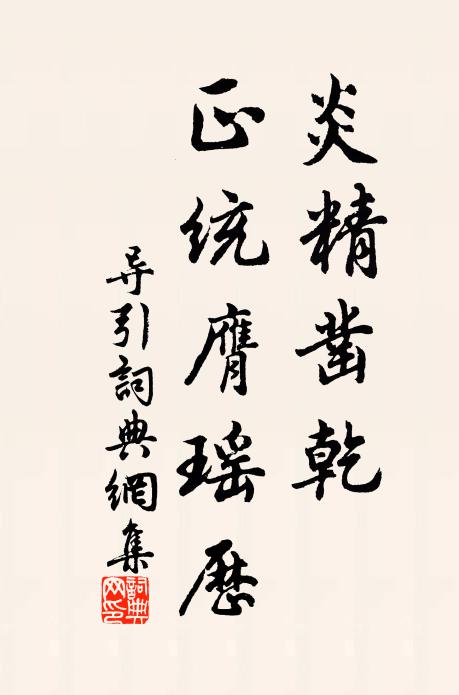 炎精凿乾
正统膺瑶历
导引詞典網集
詞典網印